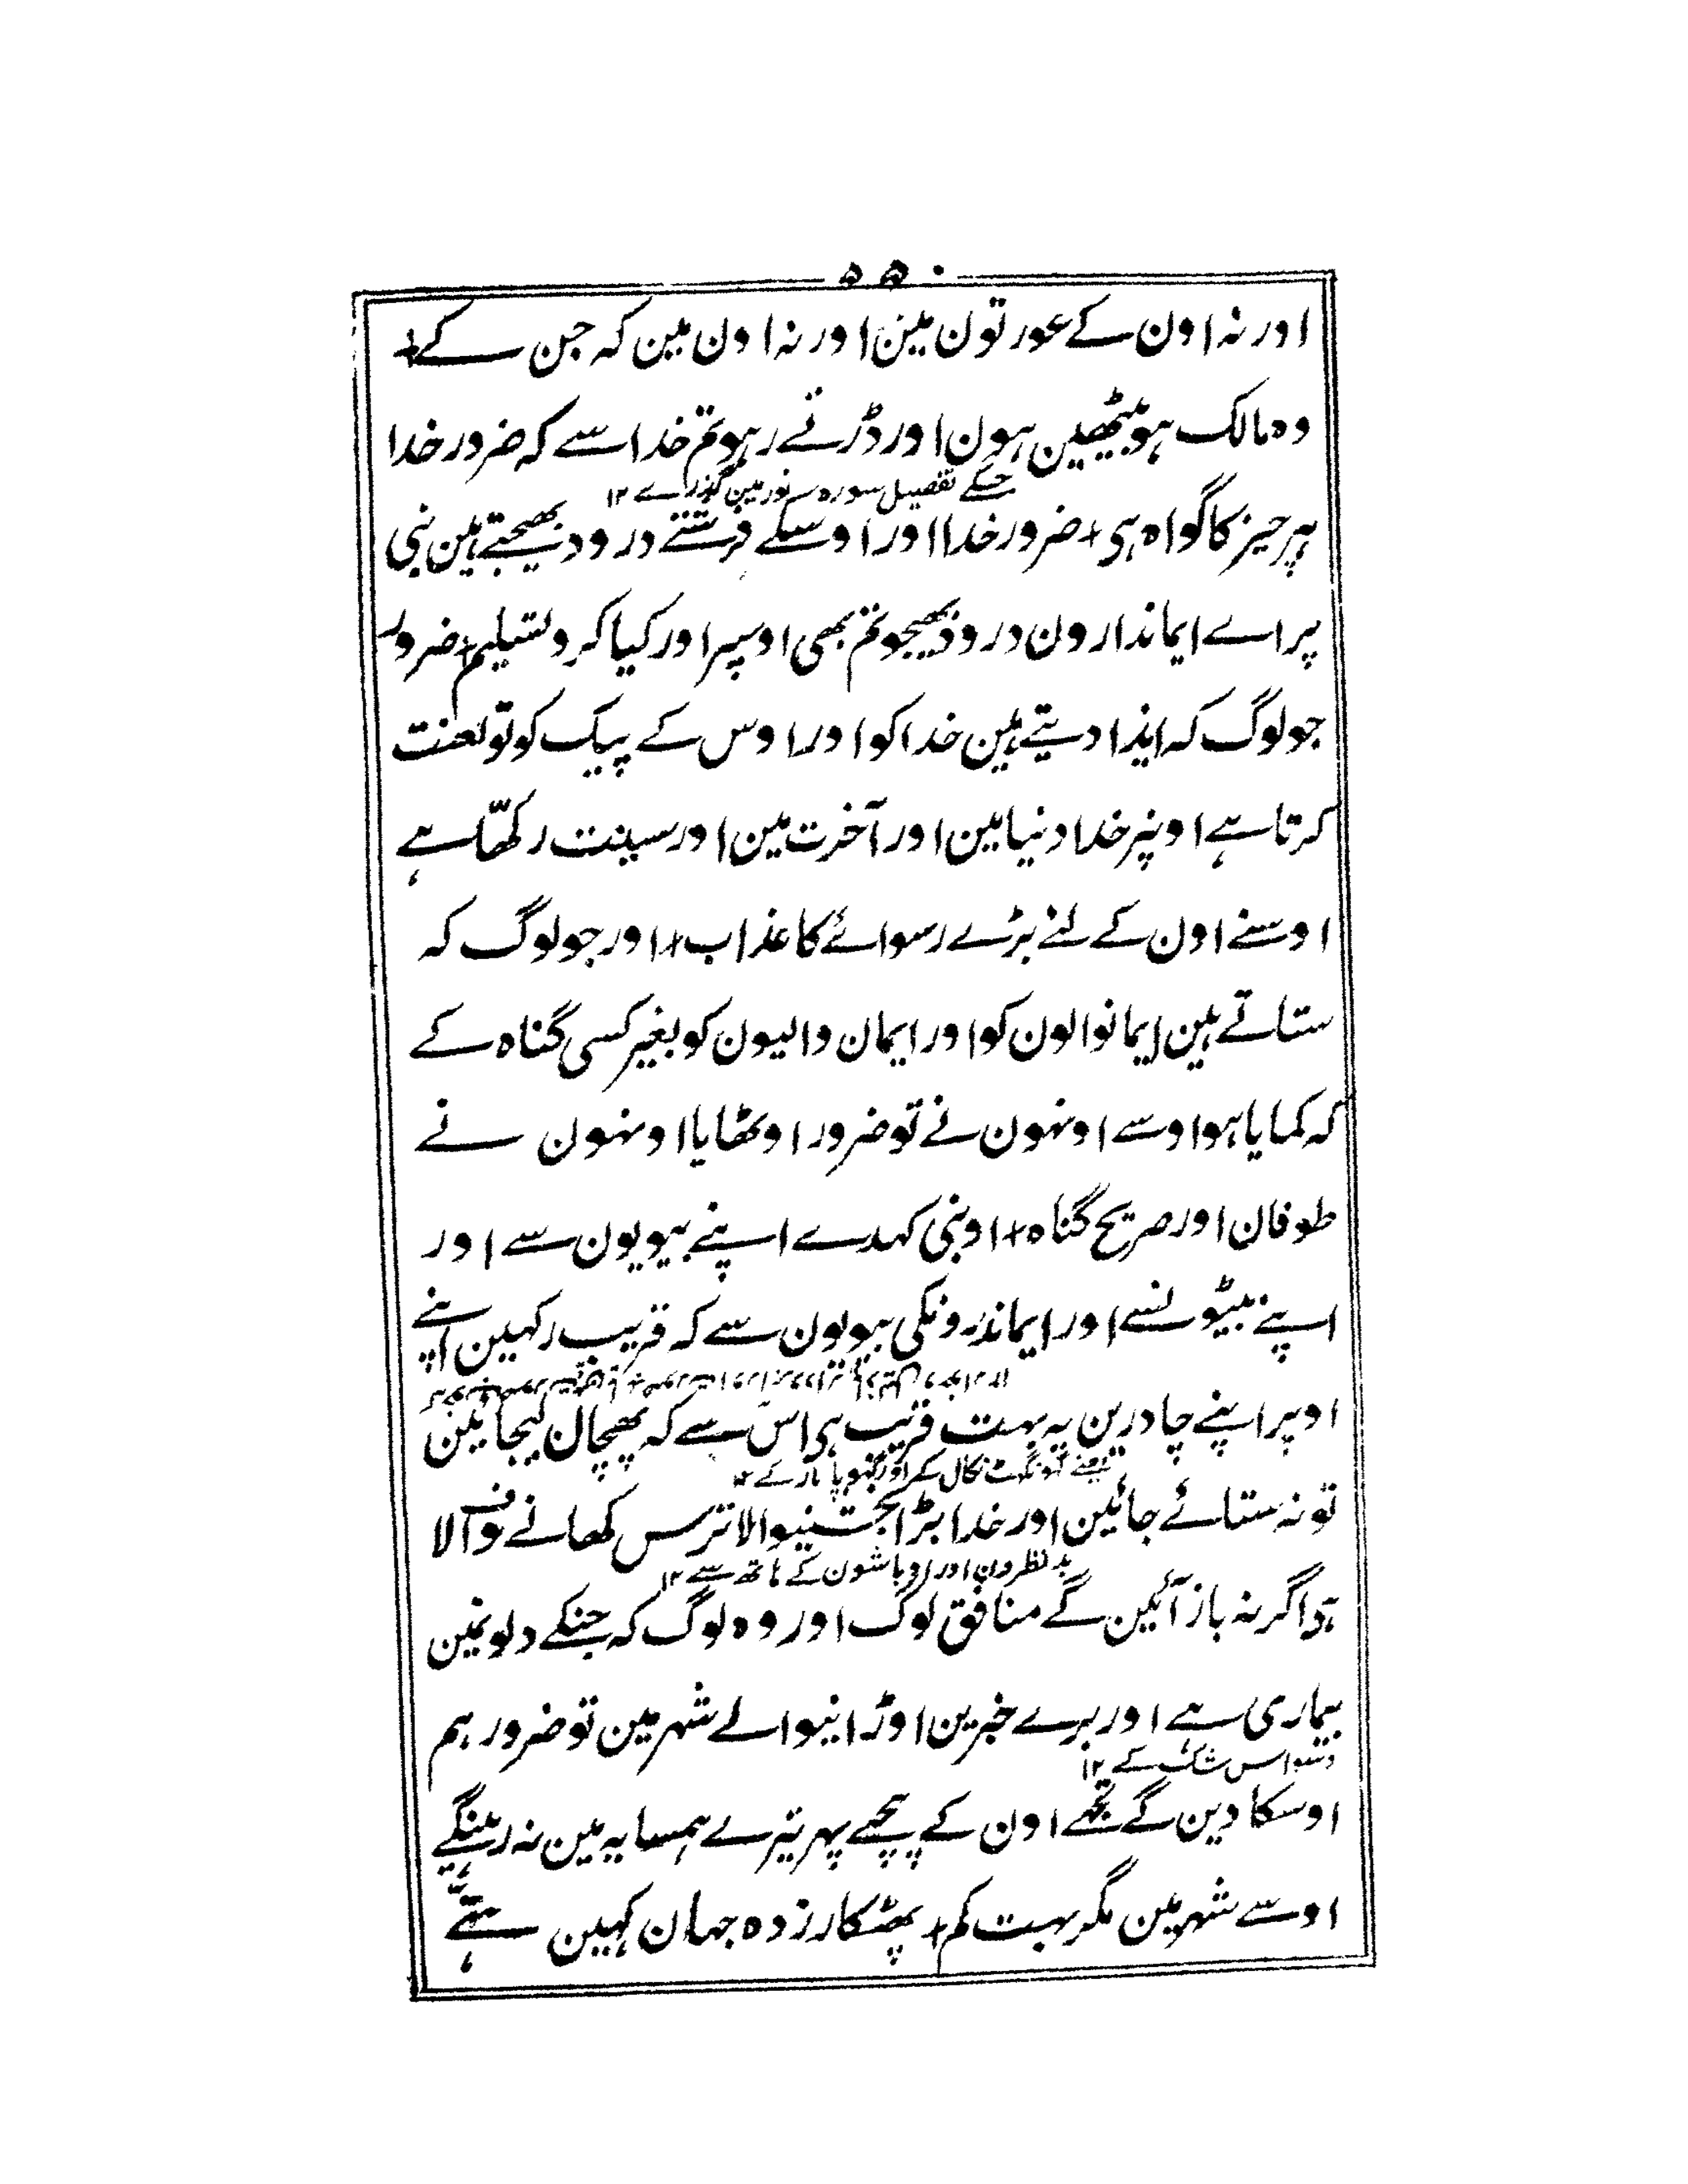 ۵۵۰
اور نہ اون کے عورتون مین اور نہ اون مین کہ جن کے +
وہ مالک ہو بیٹھین ہون اور ڈرتے رہو تم خدا سے کہ ضرور خدا
جسکے تفصیل سورہ نور مین گذرا ہے ۱۲
ہر چیز کا گواہ ہی + ضرور خدا اور اوسکے فرشتے درود بھیجتے ہین نبی
پر اے ایماندارون درود بھیجو تم بھی اوسپر اور کیا کرو تسلیم + ضرور
جو لوگ کہ ایذا دیتے ہین خدا کو اور اوس کے پیک کو تو لعنت
کرتا ہے اونپر خدا دنیا مین اور آخرت مین اور سینت رکھّا ہے
اوسنے اون کے لئے بڑے رسوائے کا عذاب + اور جو لوگ کہ
ستاتے ہین ایمانوالون کو اور ایمان والیون کو بغیر کسی گناہ کے
کہ کمایا ہو اوسے اونہون نے تو ضرور اوٹھایا اونہون نے
طوفان اور صریح گناہ + او نبی کہدے اپنے بیویون سے اور
اپنے بیٹیونسے اور ایماندرونکی بیویون سے کہ قریب رکہین اپنے
اوپر اپنے چادرین یہ بہت قریب ہی اس سے کہ پہچان لیجائین
تو نہ ستائے جائین اور خدا بڑا بخشنیوالا ترس کھانے والا
بد نظرون اور اوباشون کے ہاتھ سے ۱۲
ہی اگر نہ باز آئین گے منافق لوگ اور وہ لوگ کہ جنکے دلونمین
بیماری ہے اور برے خبرین اوڑانیوالے شہر مین تو ضرور ہم
وسواس شک کے ۱۲
اوسکا دین گے تجھے اون کے پیچھے پہر تیرے ہمسایہ مین نہ رہینگے
اوسے شہر مین مگر بہت کم + پھٹکار زدہ جہان کہین ہتّے